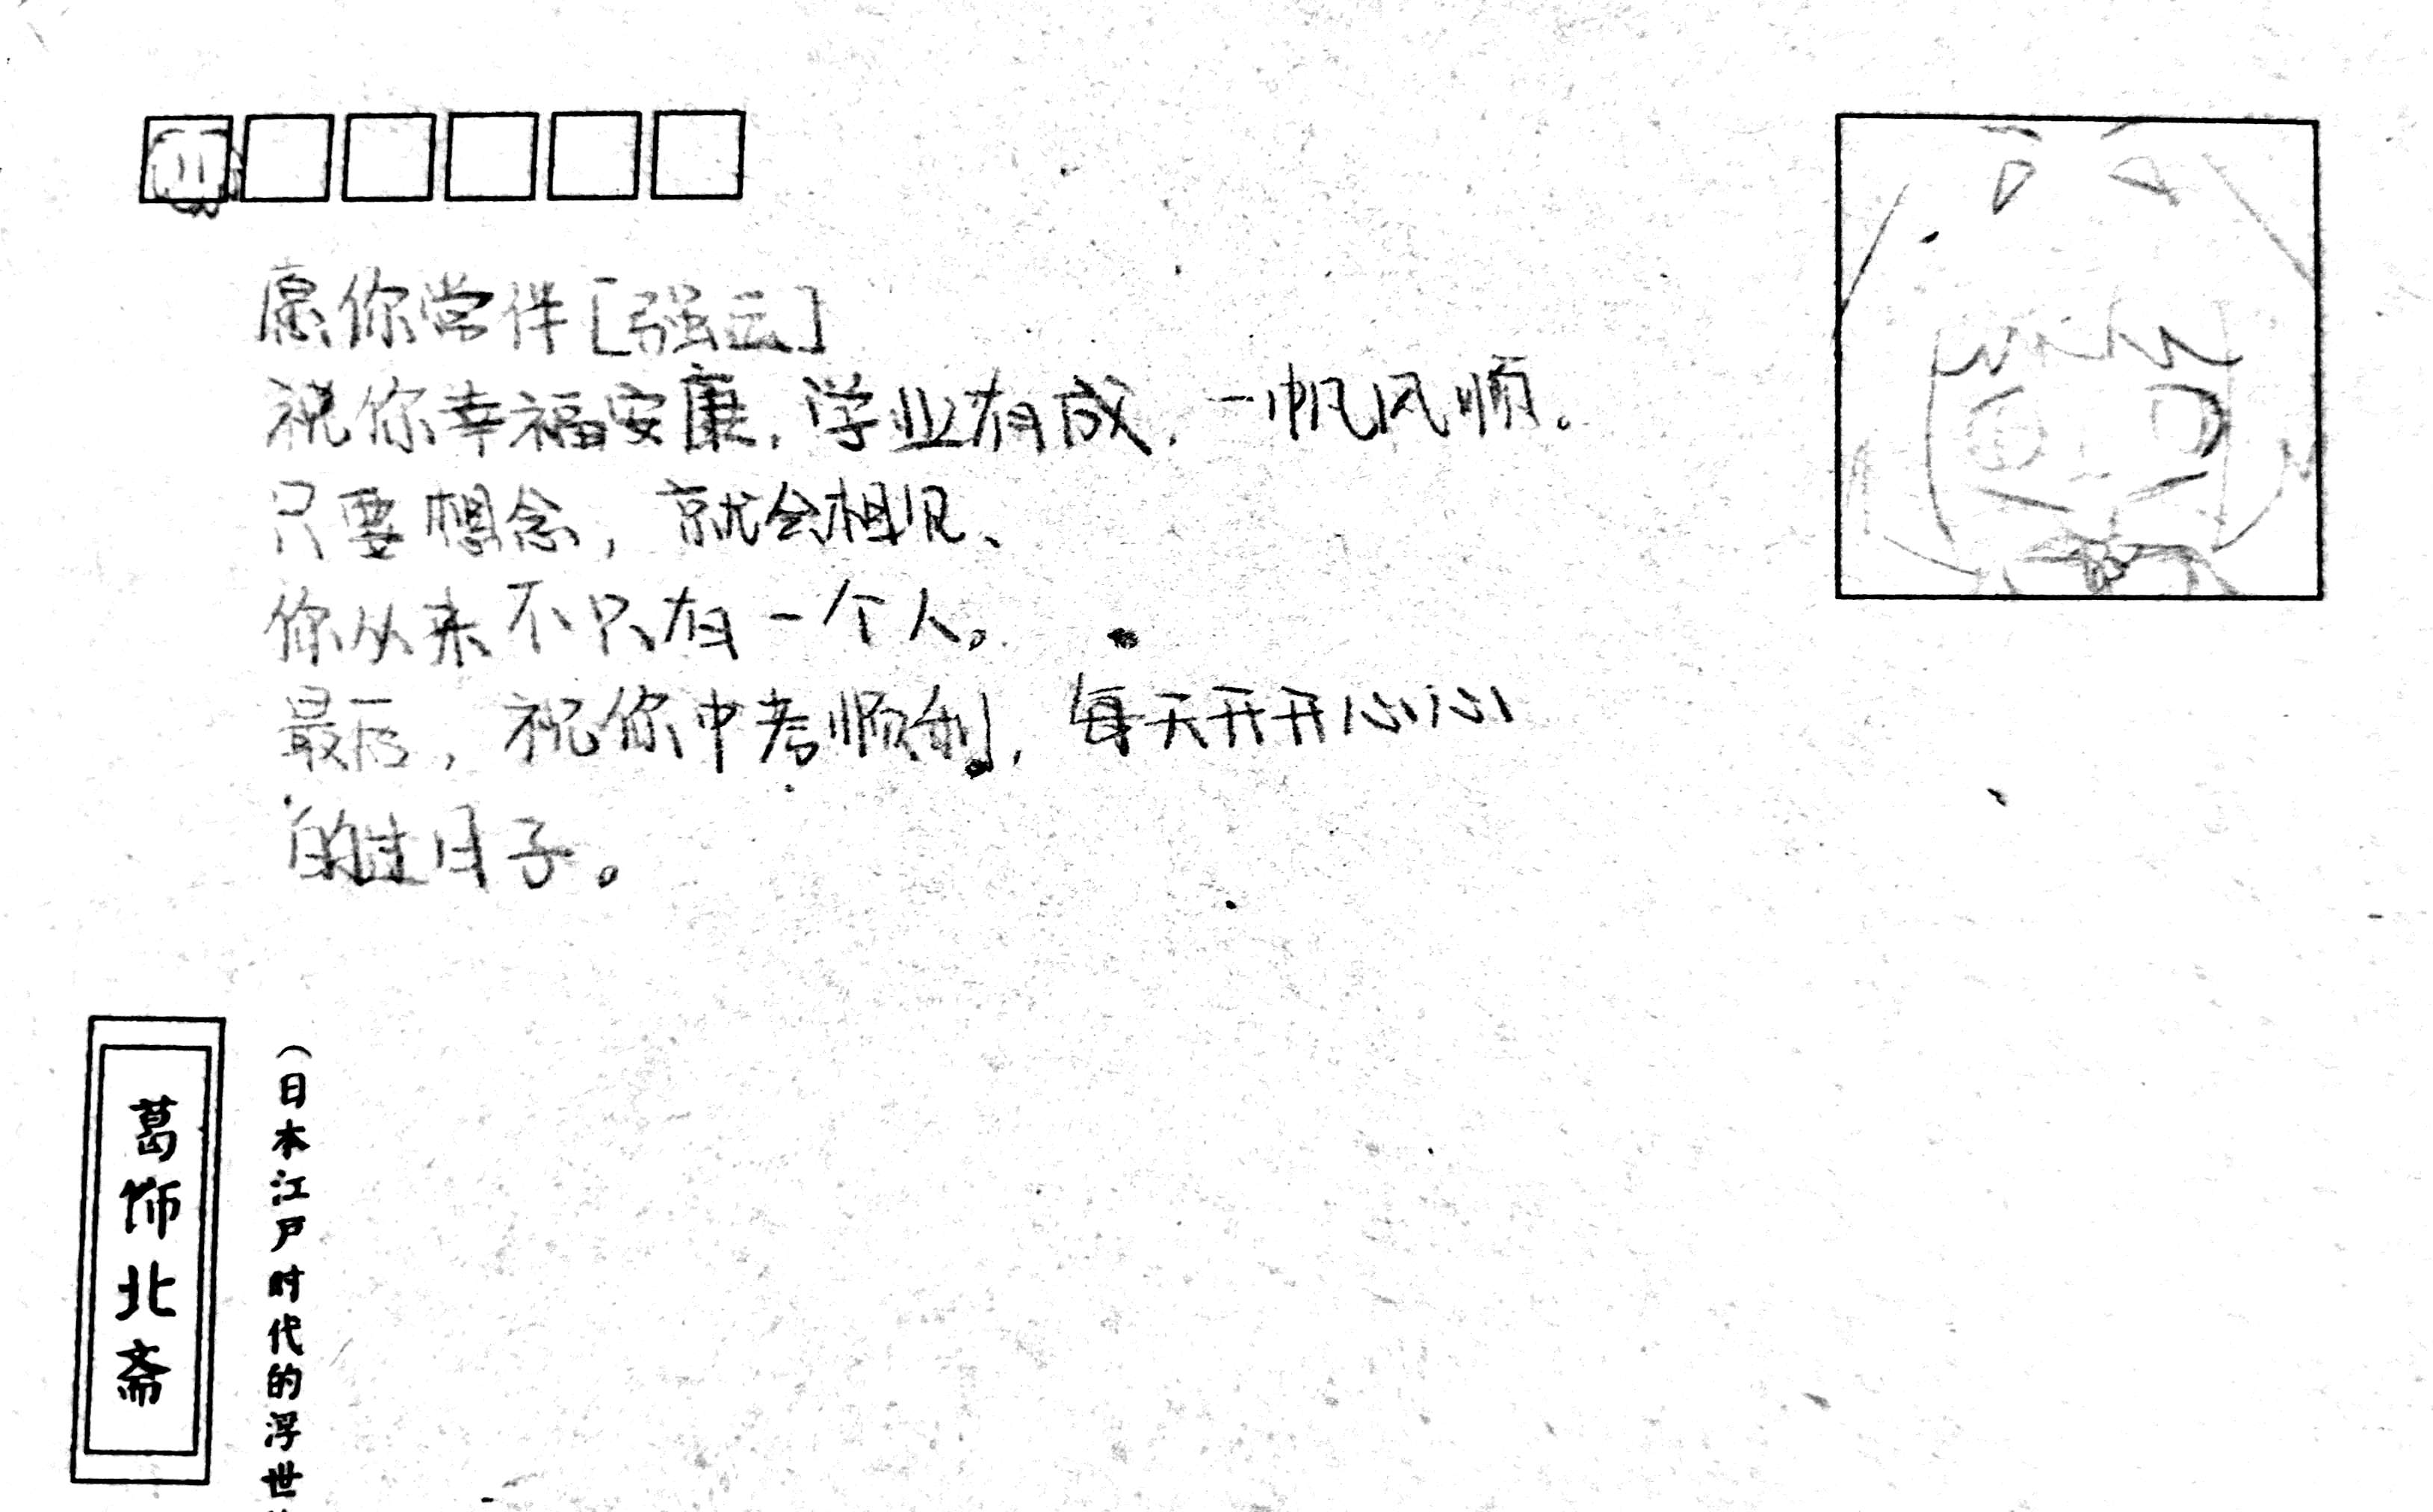 愿你常伴[强云]
祝你幸福安康，学业有成，一帆风顺。
只要想念，就会相见、
你从来不只有一个人。
最后，祝你中考顺利，每天开开心心
的过日子。
葛饰北斋
（日本江户时代的浮世